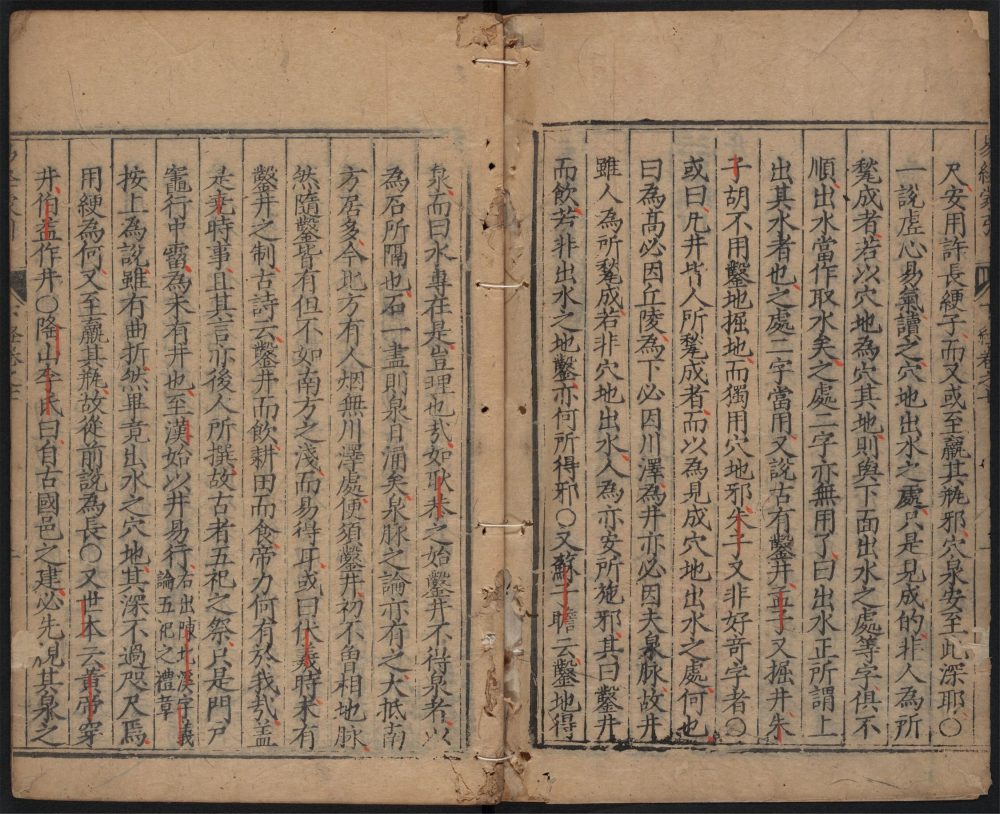 尺安用許長綆子而又或至羸其瓶邪穴泉安至此深耶○
一說虛心易氣讀之穴地出水之處只是見成的非人為所
甃成者若以穴地為穴其地則與下面出水之處等字俱不
順出水當作取水矣之處二字亦無用了曰出水正所謂上
出其水者也之處二字當用又說古有鑿井孟子又掘井朱
子胡不用鑿地掘地而獨用穴地邪朱子又非好竒字者○
或曰凡井皆人所甃成者而以為見成穴地出水之處何也
曰為髙必因丘陵為下必因川澤為井亦必因夫泉脉故井
雖人為所甃成若非穴地出水人為亦安所施邪其曰鑿井
而飲若非出水之地鑿亦何所得邪○又蘇子瞻云鑿地得
泉而曰水專在是豈理也㢤如耿恭之始鑿井不得泉者以
為石所隔也石一盡則泉日涌矣泉脉之論亦有之大抵南
方居多今北方有人烟無川澤處便須鑿井初不曾相地脉
然隨鑿皆有但不如南方之淺而易得耳或曰伏羲時未有
鑿井之制古詩云鑿井而飲耕田而食帝力何有於我㢤盖
是堯時事且其言亦後人所撰故古者五祀之祭只是門戶
竈行中霤為未有井也至漢始以井易行右出陳北溪字義論五祀之禮章
按上為說雖有曲折然畢竟出水之穴地其深不過咫尺焉
用綆為何又至羸其瓶故從前說為長○又世本云黃帝穿
井伯益作井○隆山李氏曰自古國邑之建必先視其泉之
易經蒙引